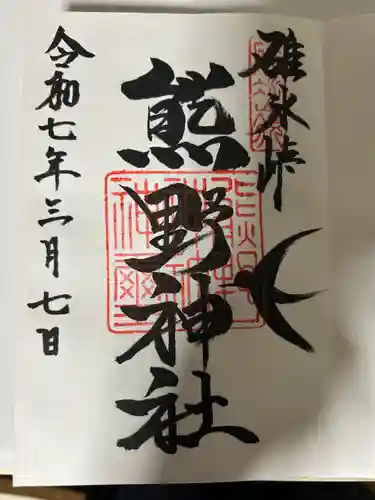 碓氷峠
熊野神社
令和七年三月七日